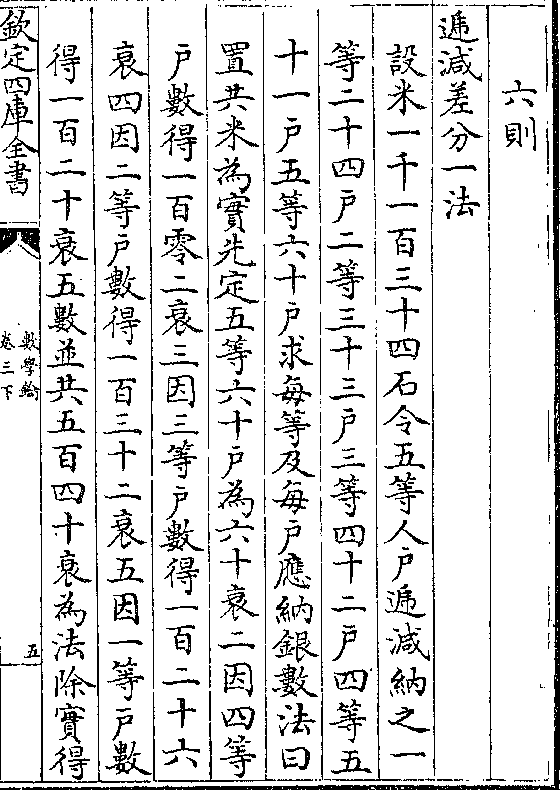 六則
遞減差分一法
設米一千一百三十四石令五等人戶遞減納之一
等二十四戶二等三十三戶三等四十二戶四等五
十一戶五等六十戶求每等及每戶應納銀數法曰
置共米為實先定五等六十戶為六十衰二因四等
戶數得一百零二衰三因三等戶數得一百二十六
衰四因二等戶數得一百三十二衰五因一等戶數
得一百二十衰五數並共五百四十衰為法除實得
欽定四庫全書
數學鑰
卷三下
五